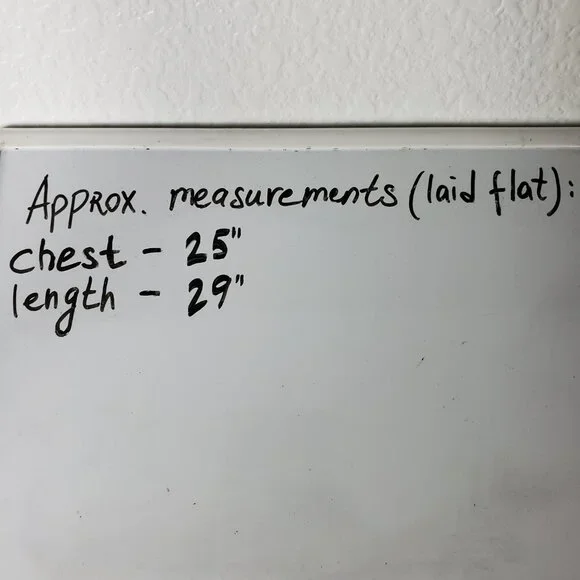 Approx. measurements (laid flat):
chest - 25"
length - 29"